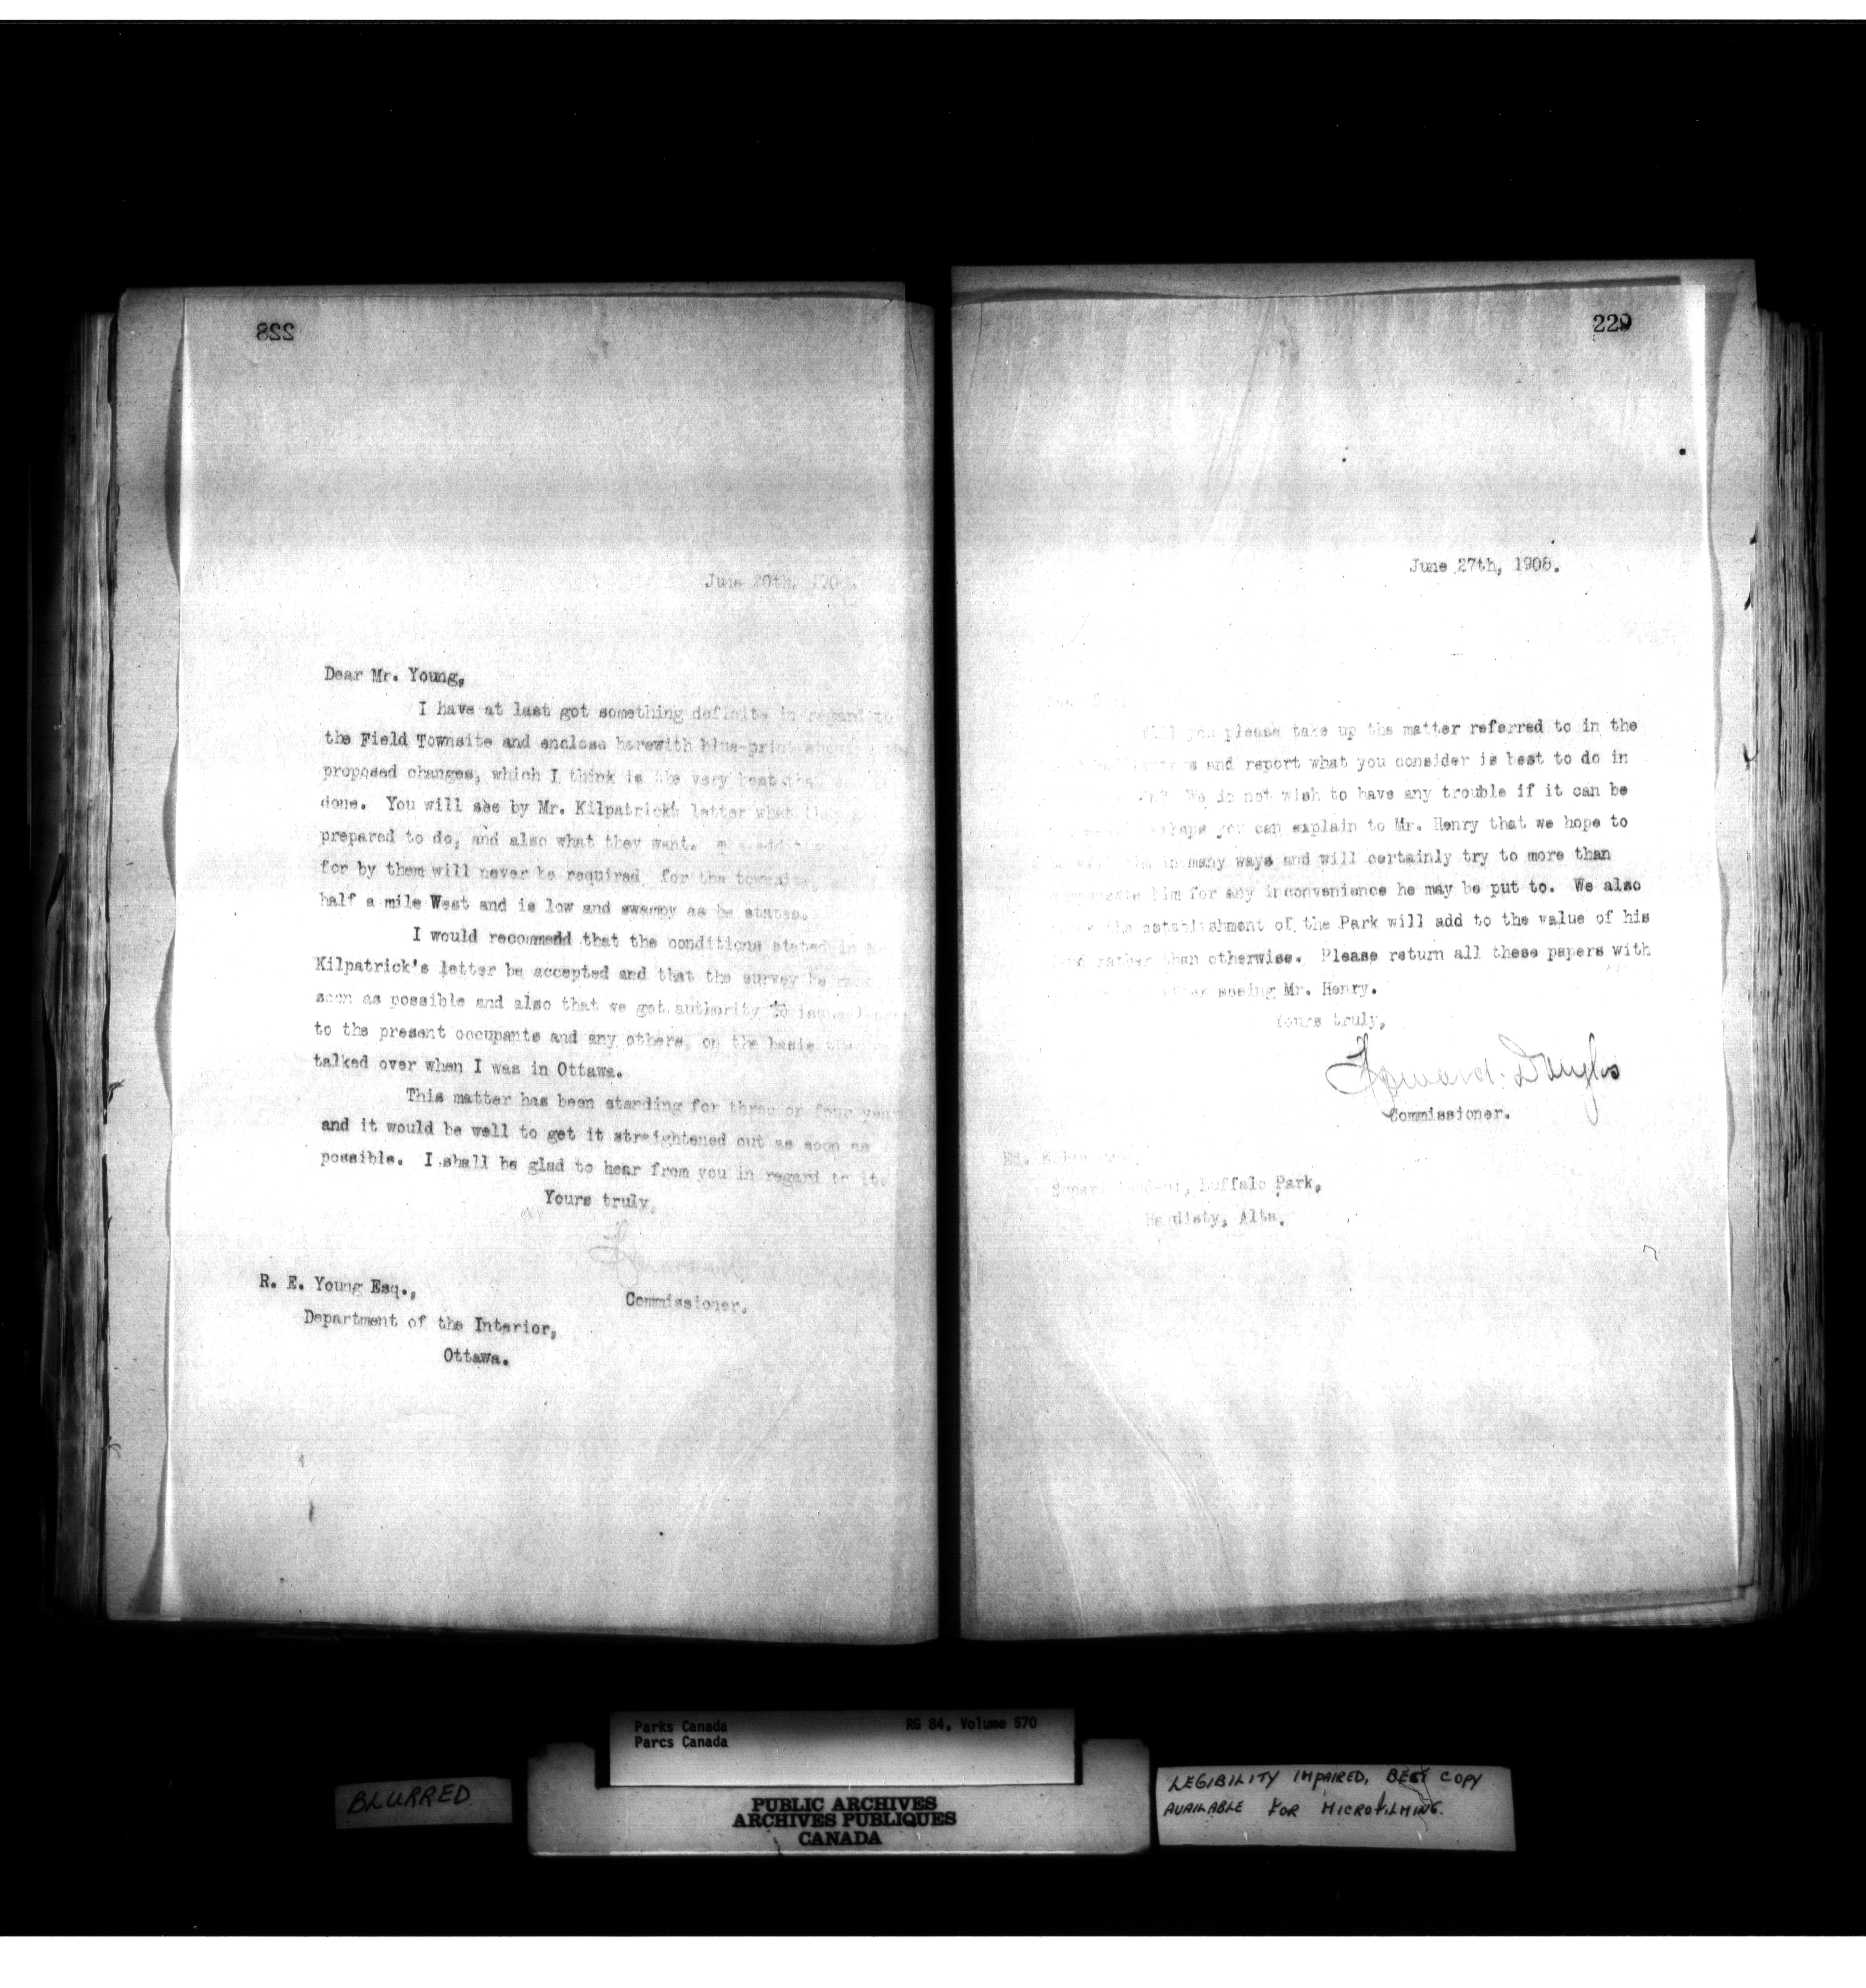 228
June 20th, 190
Dear Mr. Young,
I have at last got something definite in regard to
the Field Townsite and enclose herewith blue-print showing
proposed changes, which I think is the very best that
done. You will see by Mr. Kilpatrick's letter what they
prepared to do, and also what they want.
for by them will never be required for the townsite,
half a mile West and is low and swampy as he states.
I would recommend that the conditions stated in
Kilpatrick's letter be accepted and that the survey be
soon as possible and also that we get authority to issue
to the present occupants and any others, on the basis
talked over when I was in Ottawa.
This matter has been standing for three or four years
and it would be well to get it straightened out as soon as
possible. I shall be glad to hear from you in regard to it.
Yours truly,
Commissioner.
R. E. Young Esq.,
Department of the Interior,
Ottawa.
229
June 27th, 1908.
Will you please take up the matter referred to in the
and report what you consider is best to do in
We do not wish to have any trouble if it can be
perhaps you can explain to Mr. Henry that we hope to
in many ways and will certainly try to more than
him for any inconvenience he may be put to. We also
the establishment of the Park will add to the value of his
rather than otherwise. Please return all these papers with
after seeing Mr. Henry.
Yours truly,
Howard Douglas
Commissioner.
Ed. Ellis
Superintendent, Buffalo Park,
Hardisty, Alta.
Parks Canada RG 84, Volume 570
Parcs Canada
BLURRED
PUBLIC ARCHIVES
ARCHIVES PUBLIQUES
CANADA
LEGIBILITY IMPAIRED, BEST COPY
AVAILABLE FOR MICROFILMING.